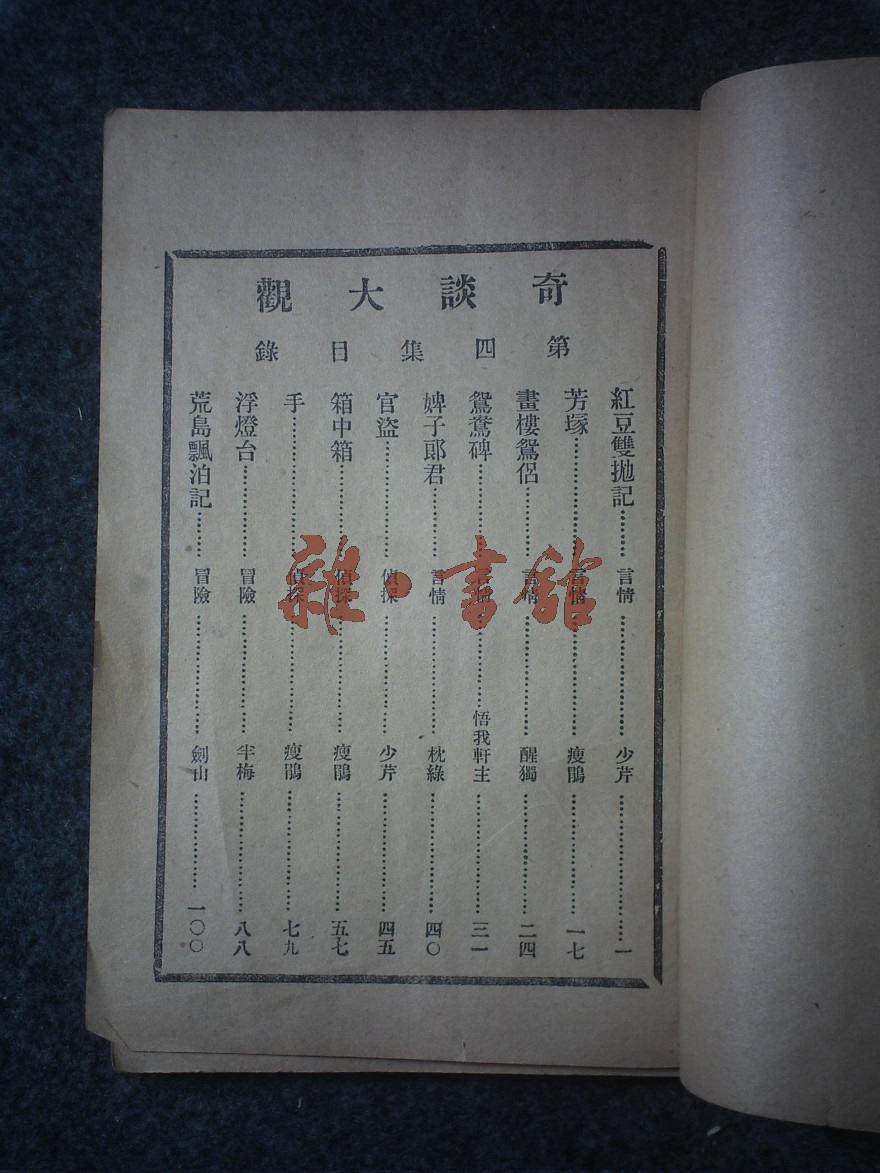 奇談大觀
第四集目錄
紅豆雙拋記………言情………………少芹……………………一
芳塚………………言情………………瘦鵑………………一七
畫樓鴛侶………言情………………醒獨………………二四
鴛鴦碑…………言情…………悟我軒主………………三一
婢子郎君………言情………………枕綠………………四〇
官盜………………偵探………………少芹………………四五
箱中箱…………偵探………………瘦鵑………………五七
手…………………偵探………………瘦鵑………………七九
浮燈台…………冒險………………半梅………………八八
荒島飄泊記………冒險………………劍山………………一〇〇
雜·書館